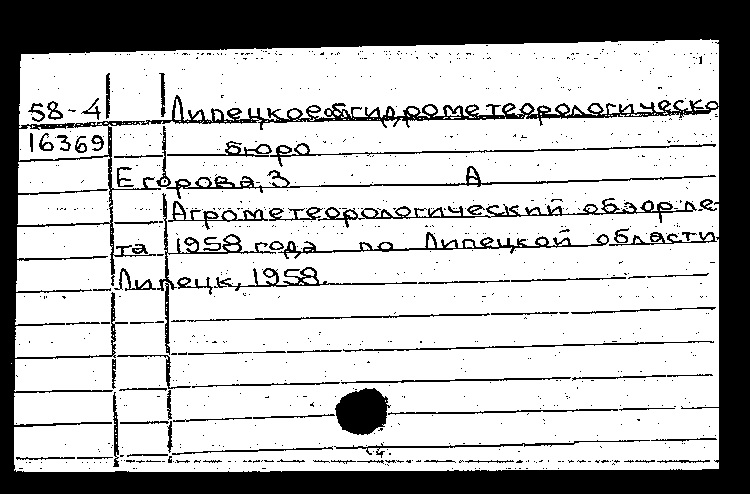 58-4 Липецкое обгидрометеорологическо
16369 бюро
Егорова, З А
Агрометеорологический обзор ле-
та 1958 года по Липецкой области
Липецк, 1958.